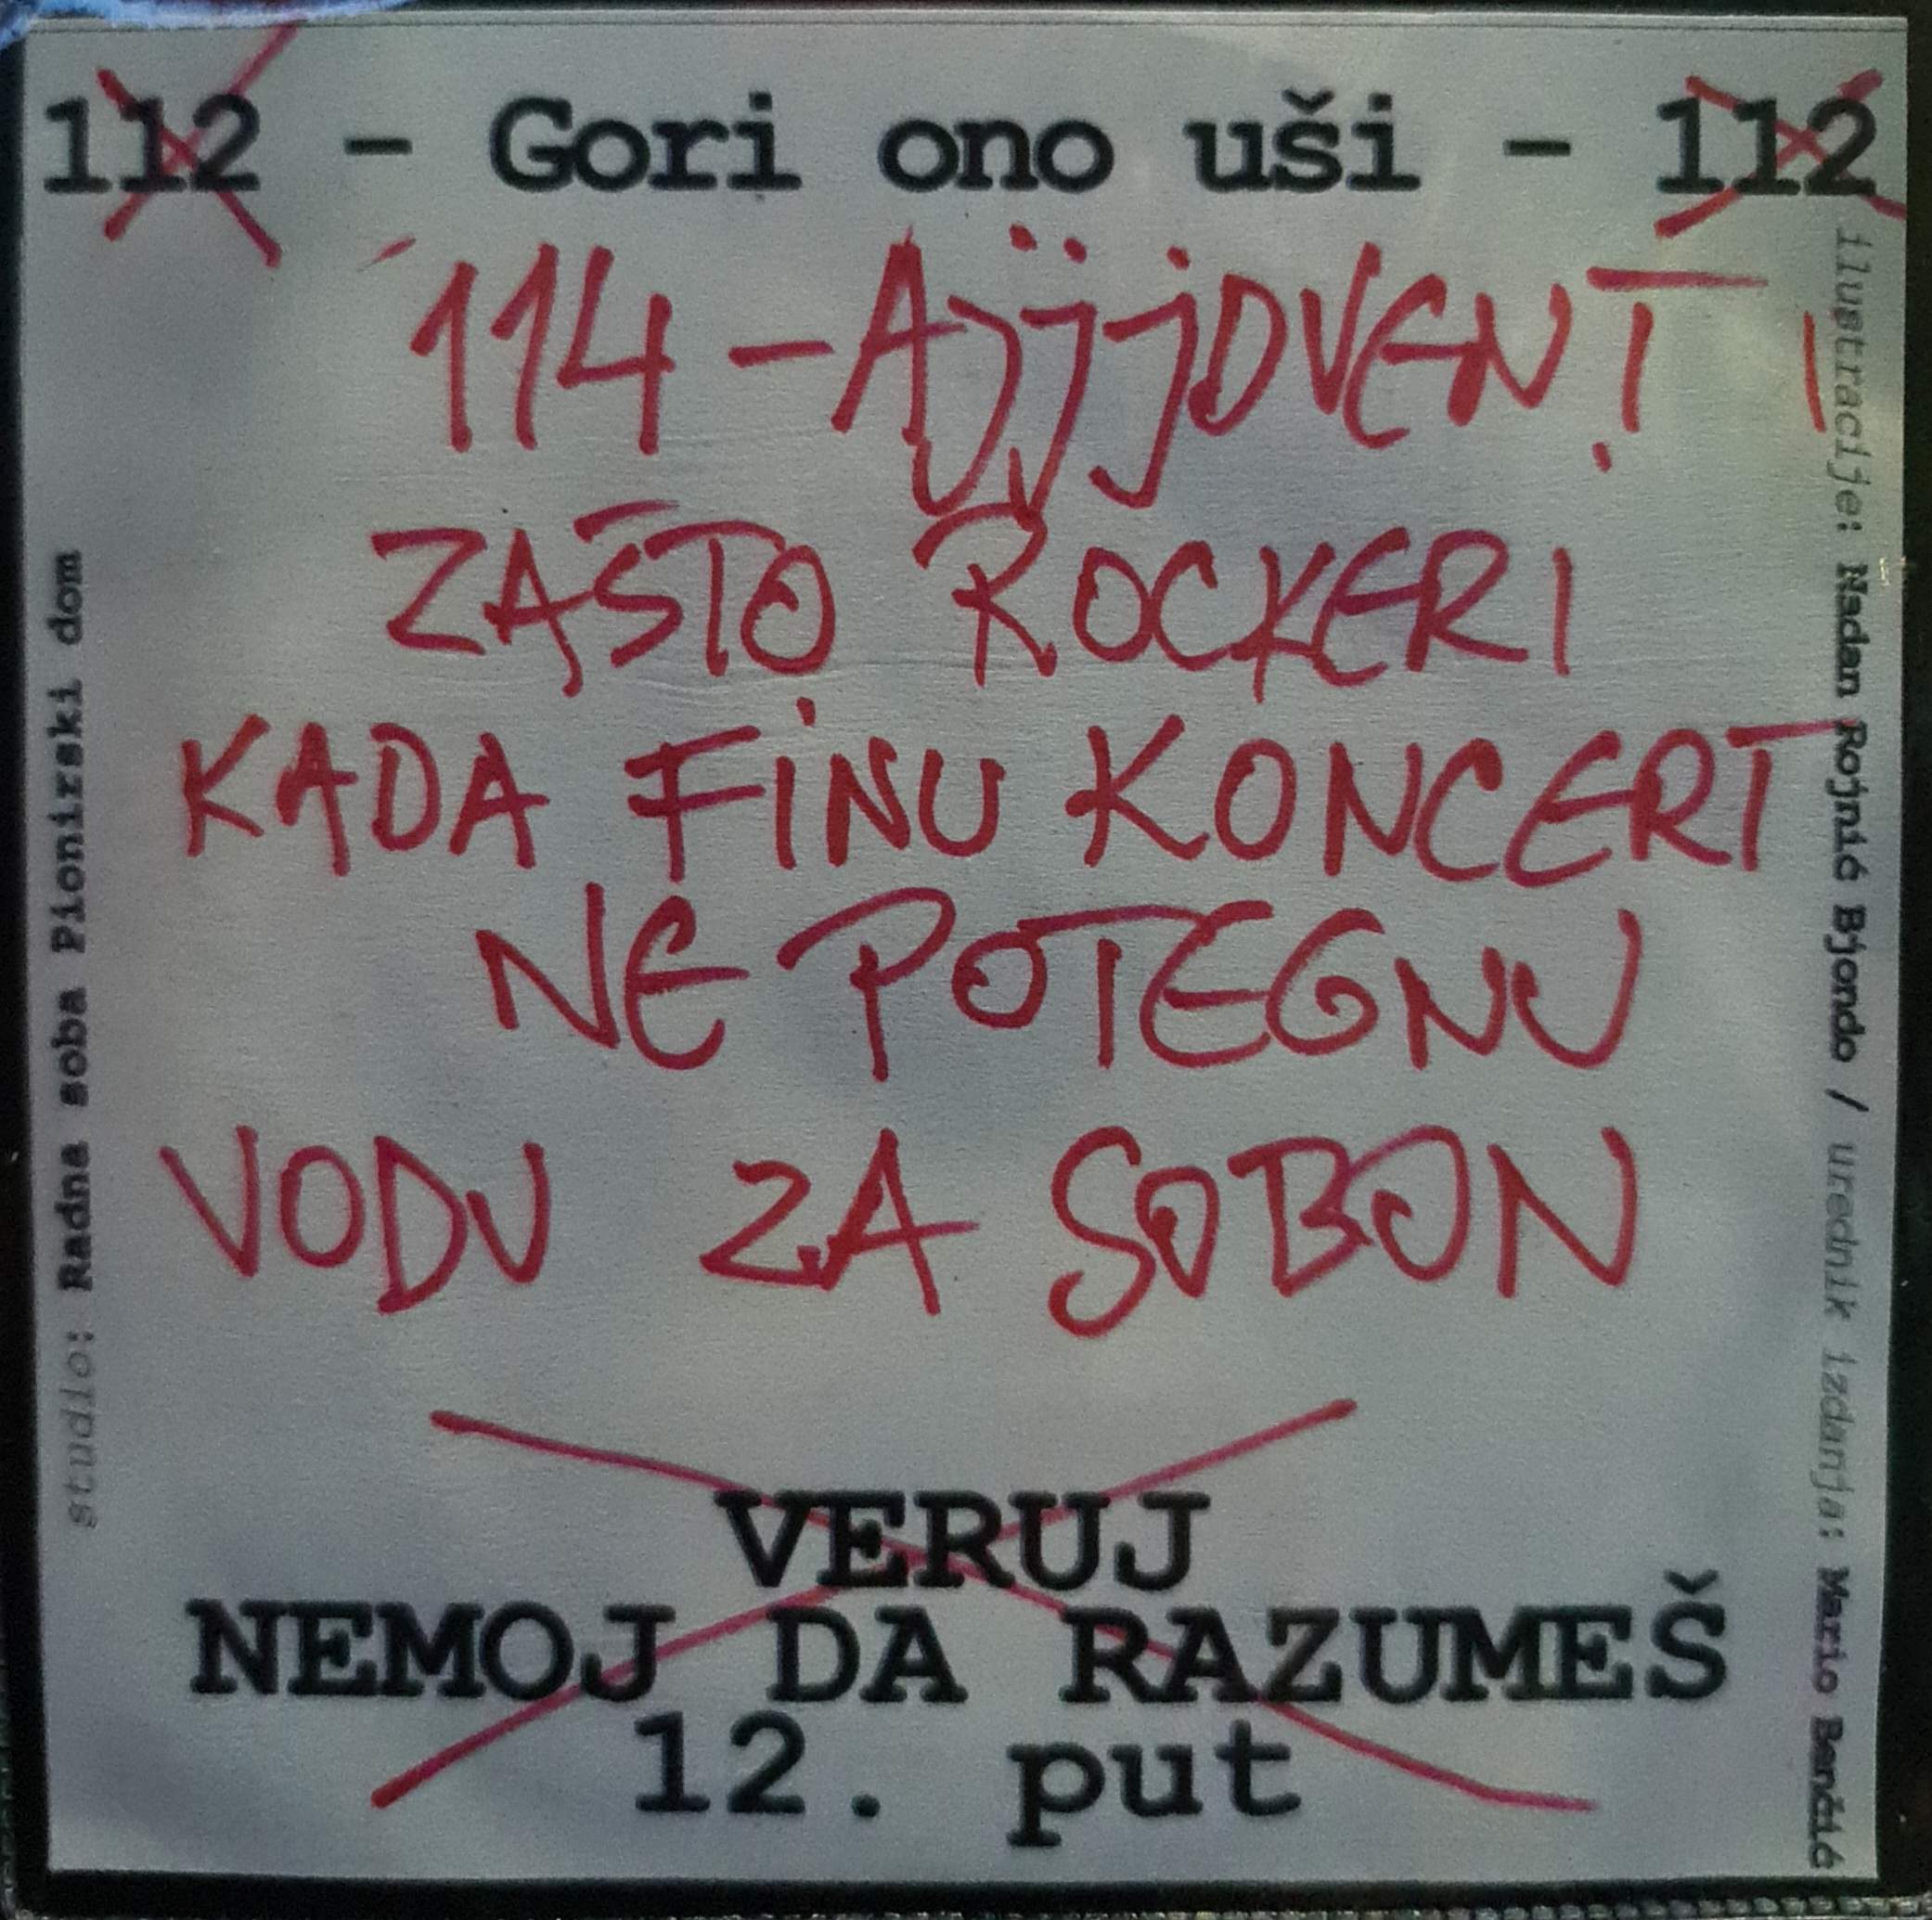 112 - Gori ono uši - 112
114 - AJJJDVENT
ZAŠTO ROCKERI
KADA FINU KONCERT
NE POTEGNU
VODU ZA SOBON
VERUJ
NEMOJ DA RAZUMEŠ
12. put
studio: Radna soba Pionirski dom
ilustracije: Nadan Rojnić Bjondo / urednik izdanja: Mario Benčić